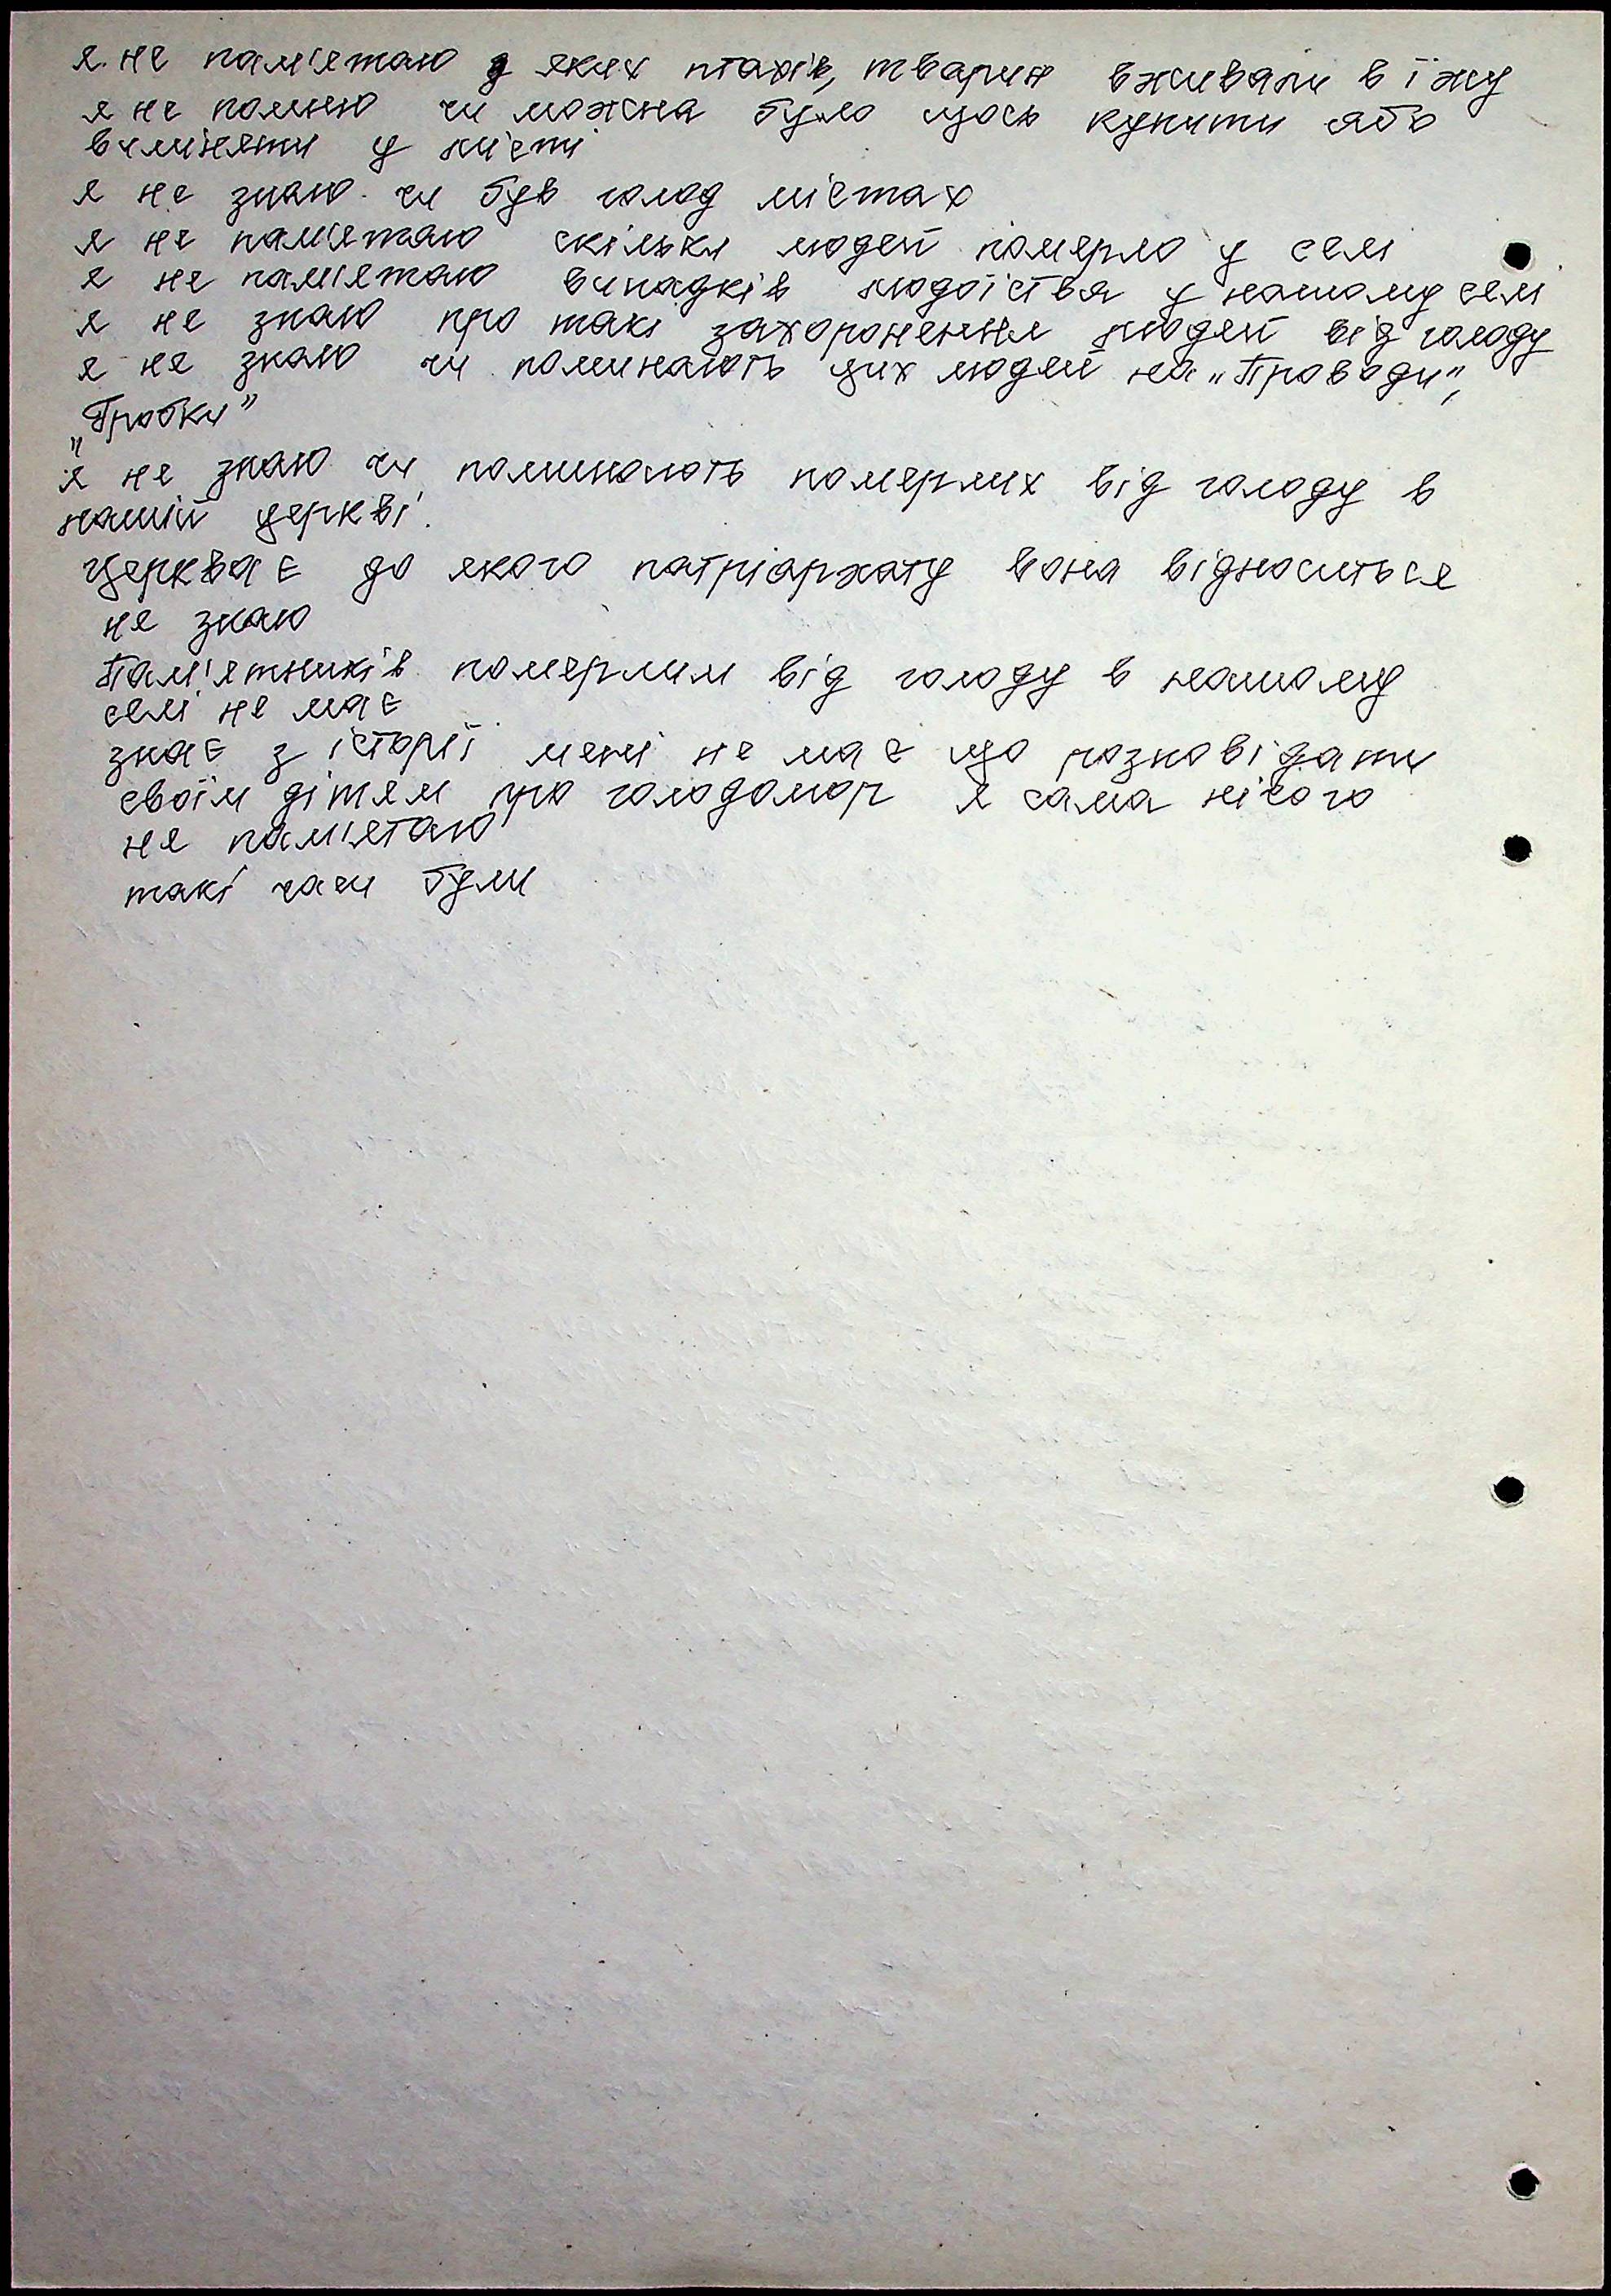 я не пам'ятаю яких птахів, тварин вживали в їжу
я не помню чи можна було щось купити або
виміняти у місті
я не знаю чи був голод містах
я не пам'ятаю скільки людей померло у селі
я не пам'ятаю випадків людоїства у нашому селі
я не знаю про такі захоронення людей від голоду
я не знаю чи поминають цих людей на „Проводи",
„Гробки"
я не знаю чи поминають померлих від голоду в
нашій церкві.
Церква є до якого патріархату вона відноситься
не знаю
Пам'ятників померлим від голоду в нашому
селі не має
знає з історії мені не має що розповідати
своїм дітям про голодомор я сама нічого
не пам'ятаю
такі часи були